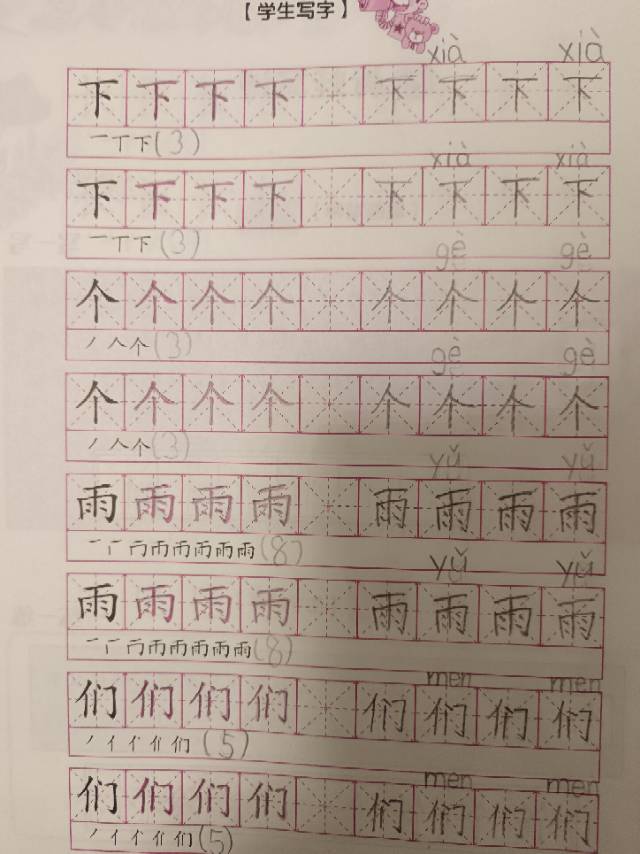 【学生写字】
xià xià
下 下 下 下 下 下 下 下
一 丁 下 (3)
xià xià
下 下 下 下 下 下 下 下
一 丁 下 (3)
gè gè
个 个 个 个 个 个 个 个
丿 人 个 (3)
gè gè
个 个 个 个 个 个 个 个
丿 人 个 (3)
yǔ yǔ
雨 雨 雨 雨 雨 雨 雨 雨
雨 (8)
yǔ yǔ
雨 雨 雨 雨 雨 雨 雨 雨
雨 (8)
men men
们 们 们 们 们 们 们 们
丿 亻 们 (5)
men men
们 们 们 们 们 们 们 们
丿 亻 们 (5)